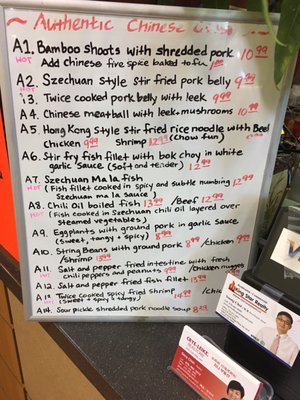 Authentic Chinese
A1. Bamboo shoots with shredded pork 10.99
HOT Add Chinese five spice baked tofu 1.00
A2. Szechuan Style Stir fried pork belly 9.99
HOT
A3. Twice cooked pork belly with leek 9.99
A4. Chinese meatball with leek+mushrooms 10.99
A5. Hong Kong Style Stir fried rice noodle with Beef
Chicken 9.99 Shrimp 12.99 (Chow fun)
A6. Stir fry fish fillet with bok choy in white
garlic Sauce (Soft and tender) 12.99
A7. Szechuan Mala fish
HOT (Fish fillet cooked in spicy and subtle numbing 12.99
Szechuan mala Sauce)
A8. Chili Oil boiled fish 13.99 /Beef 12.99
HOT (Fish cooked in Szechuan chili oil layered over
steamed vegetables)
A9. Eggplants with ground pork in garlic Sauce
(Sweet, tangy + spicy) 8.99
A10. String Beans with ground pork 8.99 /Chicken 9.99
/Shrimp 13.99
A11. Salt and pepper fried intestine with fresh
HOT chili peppers and peanuts 9.99 /Chicken nugget
A12. Salt and pepper fried fish fillet 13.99
A13. Twice cooked spicy fried shrimp 14.99 /Chi
HOT (Sweet + spicy + tangy)
A14. Sour pickle shredded pork noodle soup 8.99
CRYE-LEIKE